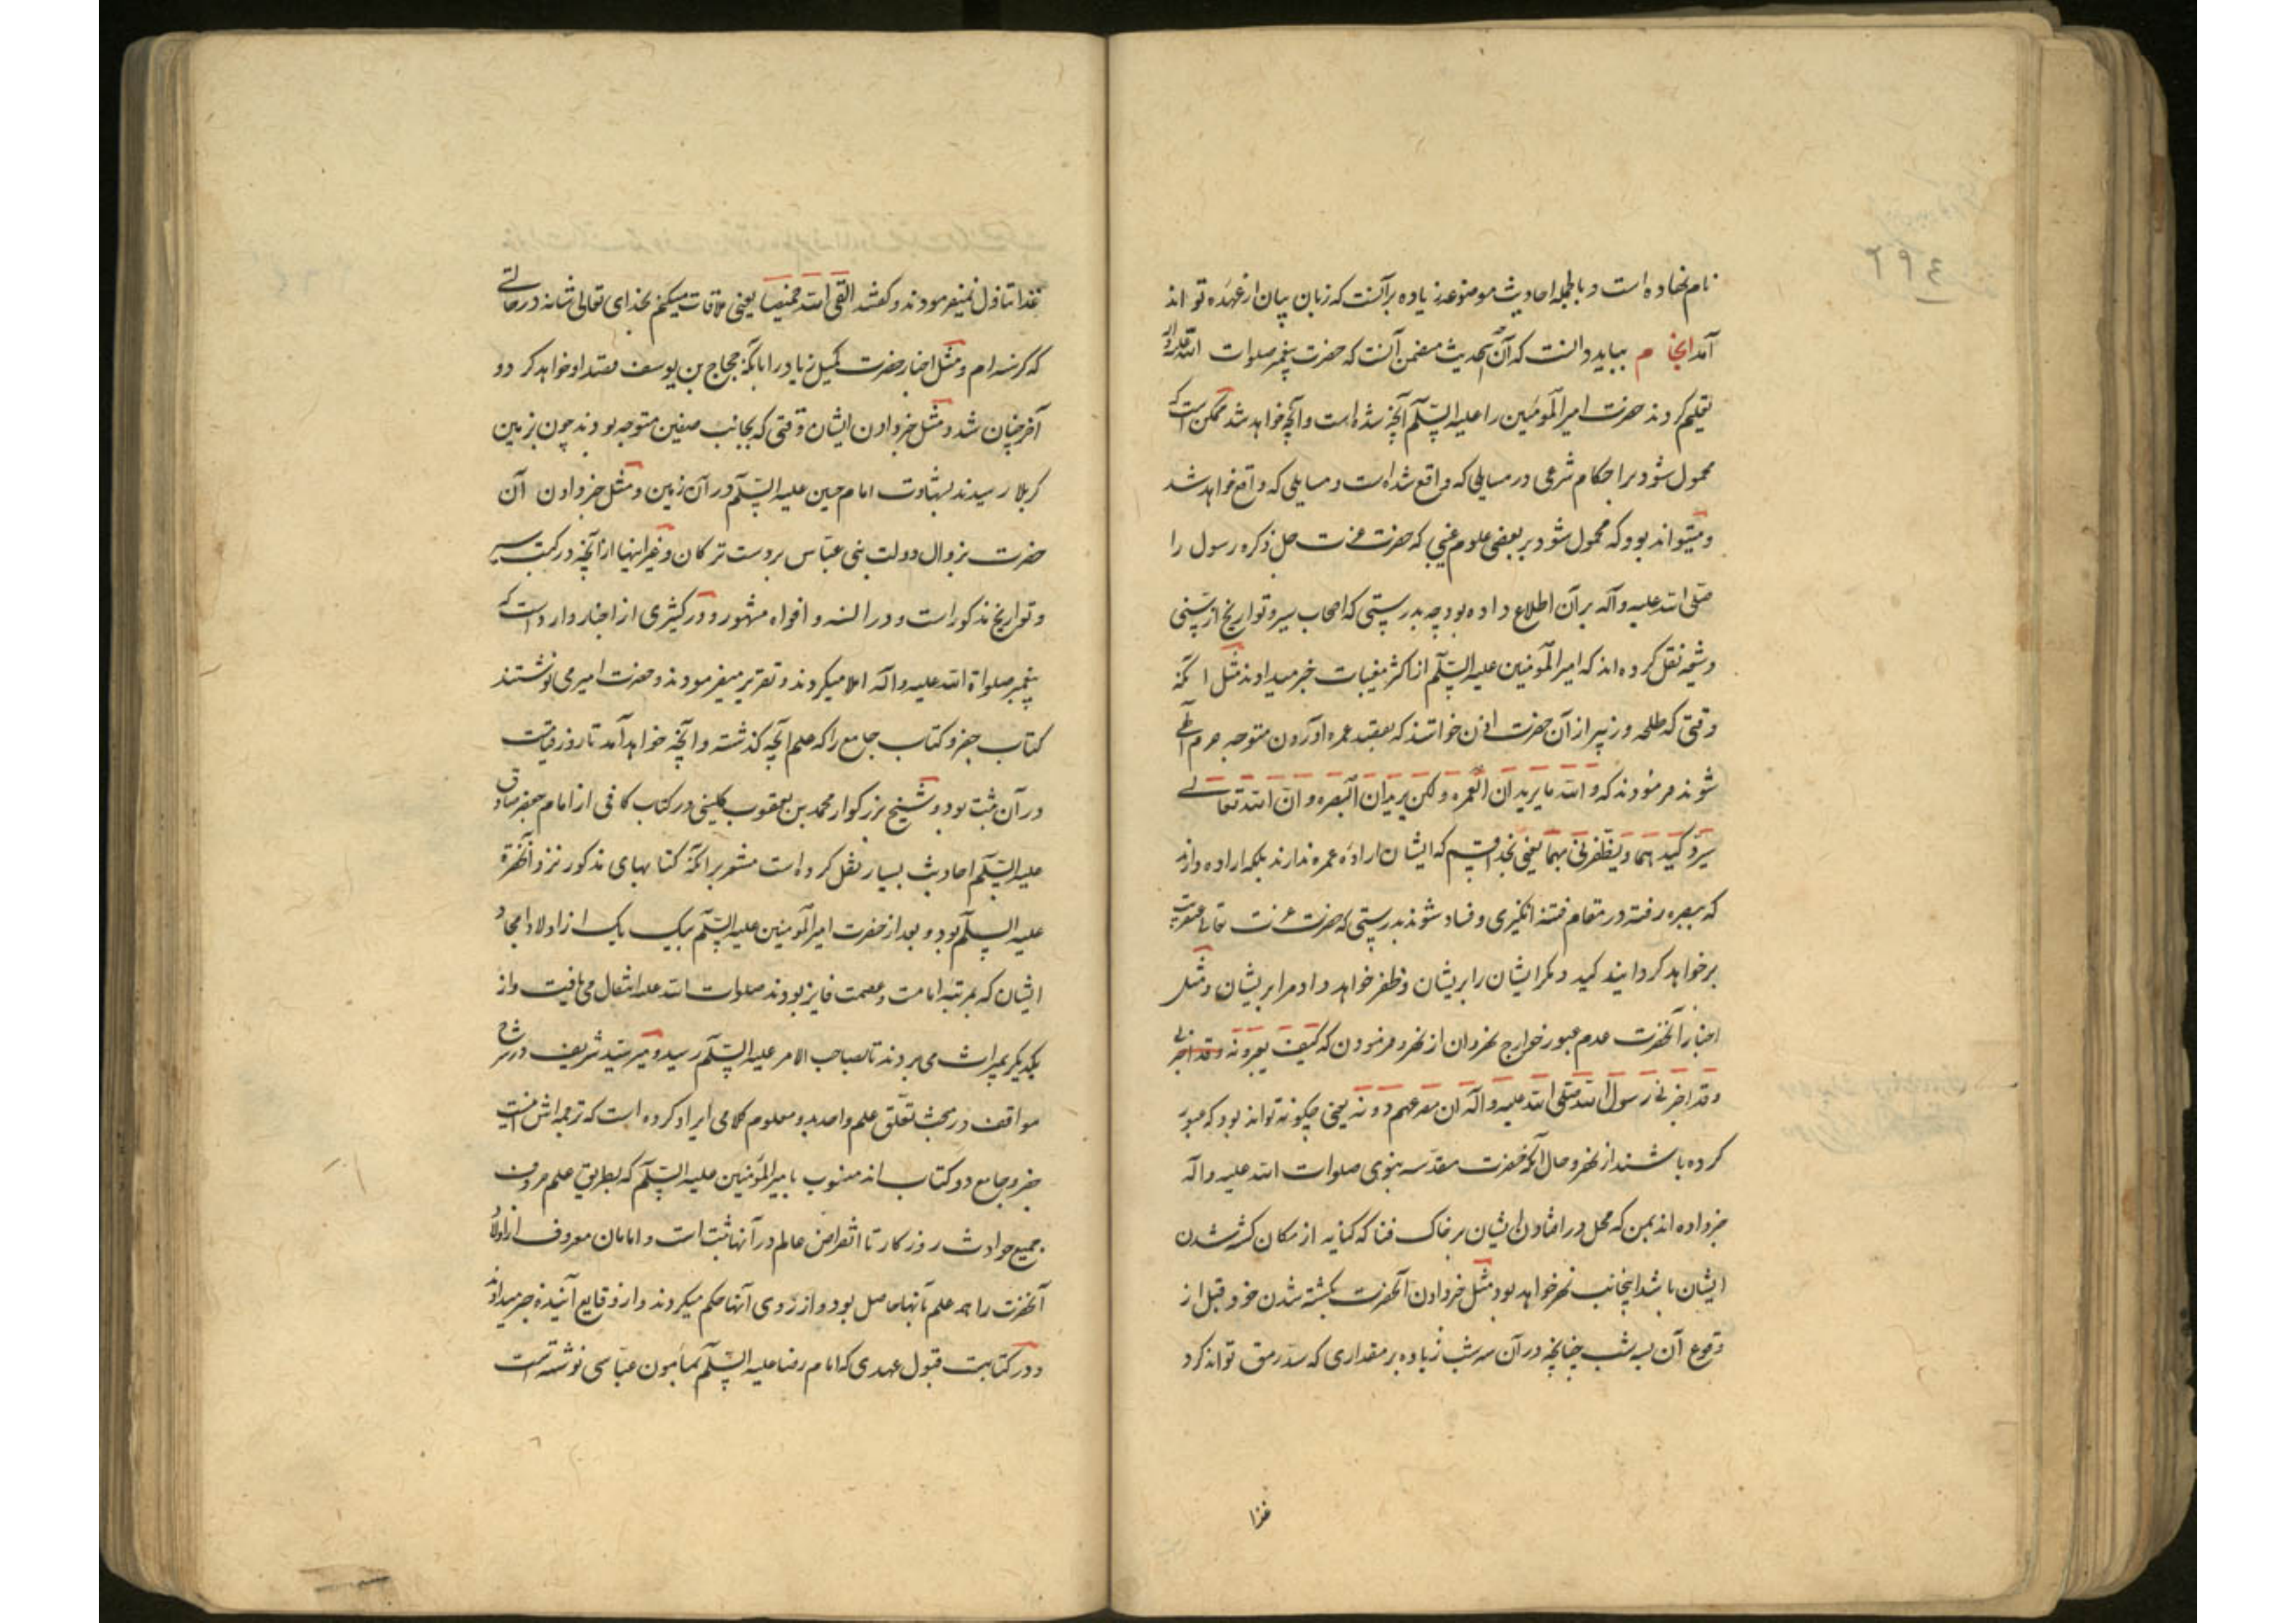 نام نهاده است و بالجمله احادیث موضوعه زیاده بر آنست که زبان بیان از عهده تواند
آمد انجام بباید دانست که آن حدیث متضمن آنست که حضرت پیغمبر صلوات الله علیه وآله
تعلیم کردند حضرت امیرالمومنین را علیه السّلم آنچه شده است و آنچه خواهد شد ممکن است که
محمول شود بر احکام شرعی در مسایلی که واقع شده است و مسایلی که واقع خواهد شد
و میتواند بود که محمول شود بر بعضی علوم غیبی که حضرت عزت جل ذکره رسول را
صلی الله علیه وآله بر آن اطلاع داده بود چه بدرستی که اصحاب سیر و تواریخ از سنی
و شیعه نقل کرده اند که امیرالمومنین علیه السّلم از اکثر مغیبات خبر میدادند مثل انکه
وقتی که طلحه و زبیر از آن حضرت اذن خواستند که بقصد عمره اوردن متوجه حرم الهی
شوند فرمودند که والله ما یریدان العمره ولکن یریدان البصره وانّ الله تعالی
سیردّ کیدهما ویظفرنی بهما یعنی بخدا قسم که ایشان اراده عمره ندارند بلکه اراده دارند
که ببصره رفته در مقام فتنه انگیزی و فساد شوند بدرستی که حضرت عزت تعالی عنقریب
بر خواهد کردانید کید و مکر ایشان را بر ایشان و ظفر خواهد داد مرا بر ایشان و مثل
اخبار آنحضرت عدم عبور خوارج نهروان از نهر و فرمودن که کیف یعبرونه وقد اخبرنی
وقد اخبرنی رسول الله صلّی الله علیه وآله ان مصرعهم دونه یعنی چکونه تواند بود که عبور
کرده باشند از نهر و حال آنکه حضرت مقدسه نبوی صلوات الله علیه وآله
خبر داده اند بمن که محل در افتادن ایشان بر خاک فنا که کنایه از مکان کشته شدن
ایشان باشد اینجانب نهر خواهد بود و مثل خبر دادن آنحضرت بکشته شدن خود قبل از
وقوع آن بسه شب چنانچه در آن سه شب زیاده بر مقداری که سدّ رمق تواند کرد
غذا
غذا تناول نمیفرمودند و کفتند القی الله خمیصا یعنی ملاقات میکنم بخدای تعالی شانه در حالتی
که کرسنه ام و مثل اخبار حضرت کمیل زیاد را بانکه حجاج بن یوسف قصد او خواهد کرد و
آخر چنان شد و مثل خبر دادن ایشان وقتی که بجانب صفین متوجه بودند چون بزمین
کربلا رسیدند بشهادت امام حسین علیه السّلم در آن زمین و مثل خبر دادن آن
حضرت بزوال دولت بنی عبّاس بر دست ترکان و غیر اینها از آنچه در کتب سیر
و تواریخ مذکور است و در السنه و افواه مشهور و در کثیری از اخبار وارد است که
پیغمبر صلواة الله علیه وآله املا میکردند و تقریر میفرمودند و حضرت امیر می نوشتند
کتاب جفر و کتاب جامع را که علم آنچه کذشته و آنچه خواهد آمد تا روز قیامت
در آن ثبت بود و شیخ بزرگوار محمد بن یعقوب کلینی در کتاب کافی از امام جعفر صادق
علیه السّلم احادیث بسیار نقل کرده است مشعر بر آنکه کتابهای مذکور نزد آنحضرة
علیه السلم بود و بعد از حضرت امیرالمومنین علیه السّلم بیک یک از اولاد امجاد
ایشان که بمرتبه امامت و عصمت فایز بودند صلوات الله علیه انتقال می یافت و از
یکدیکر بمیراث می بردند تا بصاحب الامر علیه السّلم رسید و میر سیّد شریف در شرح
مواقف در مبحث تعلّق علم واحد بدو معلوم کلامی ایراد کرده است که ترجمه اش اینست
جفر و جامع دو کتاب اند منسوب بامیرالمؤمنین علیه السّلم که بطریق علم حروف
جمیع حوادث روزکار تا انقراض عالم در آنها ثبت است و امامان معروف از اولاد
آنحضرت را همه علم بآنها حاصل بود و از روی آنها حکم میکردند و از وقایع آینده خبر میدادند
و در کتابت قبول عهدی که امام رضا علیه السّلم بمأمون عبّاسی نوشته است